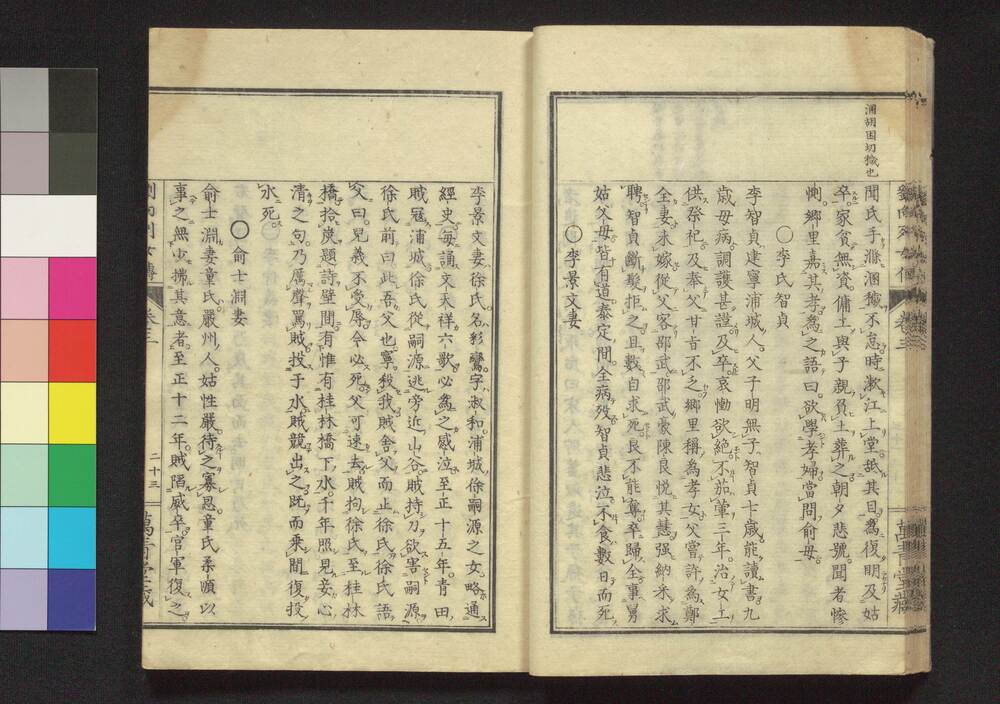 溷胡困切穢也
聞氏手滌溷穢不怠時漱江上堂舐其目爲復明及姑
卒家貧無資傭工與子親負土葬之朝夕悲號聞者慘
惻鄉里嘉其孝爲之語曰欲學孝婦當問俞母
〇李氏智貞
李智貞建寧浦城人父子明無子智貞七歲能讀書九
歲母病調護甚謹及卒哀慟欲絕不茹葷三年治女工
供祭祀及奉父甘旨不乏鄉里稱爲孝女父嘗許爲鄭
全妻未嫁從父客邵武邵武豪陳良悅其慧强納采求
聘智貞斷髮拒之且數自求死良不能奪卒歸全事舅
姑父母皆有道泰定間全病歿智貞悲泣不食數日而死
〇李景文妻
李景文妻徐氏名彩鸞字叔和浦城徐嗣源之女略通
經史每誦文天祥六歌必爲之感泣至正十五年青田
賊寇浦城徐氏從嗣源逃旁近山谷賊持刀欲害嗣源
徐氏前曰此吾父也寧殺我賊舍父而止徐氏徐氏語
父曰兒義不受辱今必死父可速去賊拘徐氏至桂林
橋拾炭題詩壁間有惟有桂林橋下水千年照見妾心
清之句乃厲聲罵賊投于水賊競出之既而乘間復投
水死
〇俞士淵妻
俞士淵妻童氏嚴州人姑性嚴待之寡恩童氏柔順以
事之無少拂其意者至正十二年賊陷威平官軍復之
二十三